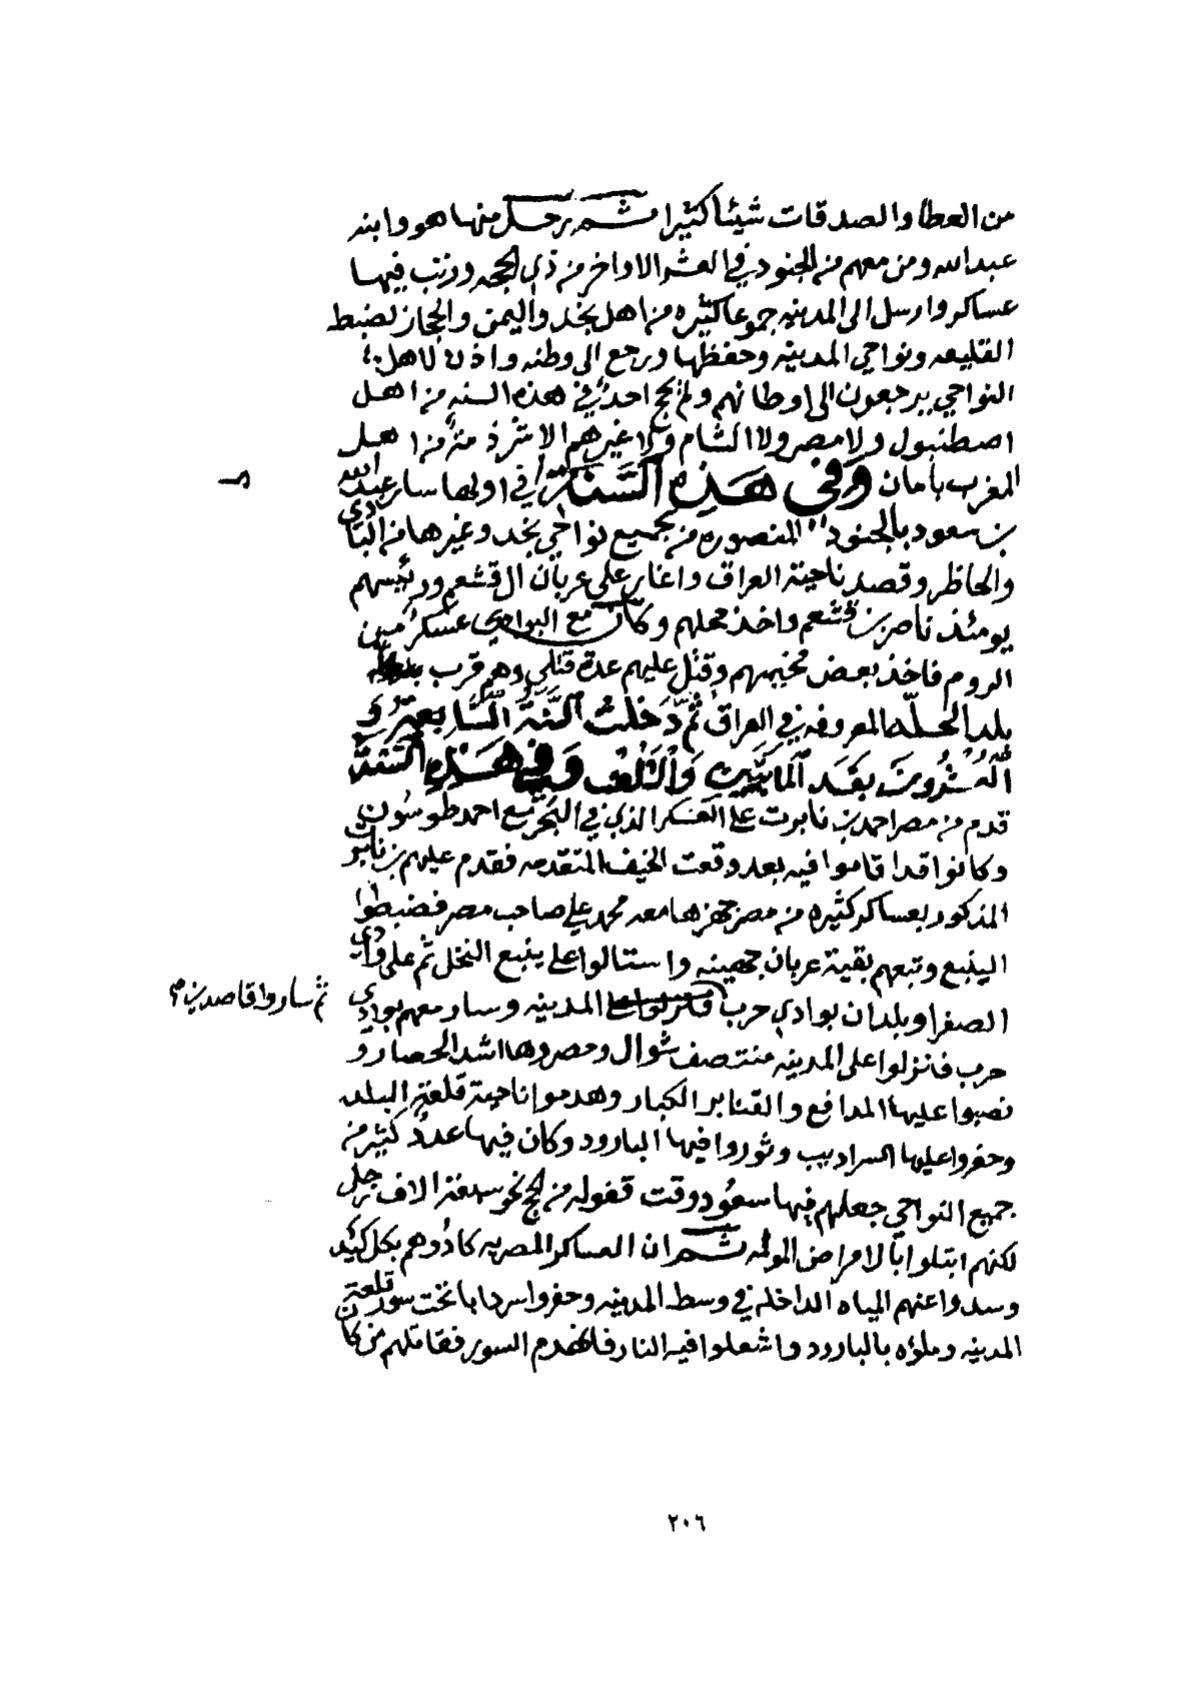 من العطا والصدقات شيئا كثيرا ثم رحل منها هو وابنه
عبدالله ومن معهم من الجنود في العشر الاواخر من ذي الحجه ورتب فيها
عساكر وارسل الى المدينه جموعا كثيره من اهل نجد واليمن والحجاز لضبط
القليعه ونواحي المدينه وحفظها ورجع الى وطنه واذن لاهل
النواحي يرجعون الى اوطانهم ولم يحج احد في هذه السنه من اهل
اصطنبول ولا مصر ولا الشام ولا غيرهم الا شرذمة من اهل
المغرب بامان وفي هذه السنة في اولها سار عبدالله
بن سعود بالجنود المنصوره من جميع نواحي نجد وغيرها من البادي
والحاظر وقصد ناحية العراق واغار على عربان ال قشعم ورئيسهم
يومئذ ناصر بن قشعم واخذ محلهم وكان مع البوادي عسكر من
الروم فاخذ بعض مخيمهم وقتل عليهم عدة قتلى وهم قرب
بلد الحله المعروفه في العراق ثم دخلت السنة السابعة و
العشرون بعد المايتين والالف وفي هذه السنة
قدم من مصر احمد بن نابرت على العسكر الذي في البحر مع احمد طوسون
وكانوا قد اقاموا فيه بعد وقعت الخيف المتقدمه فقدم عليهم بن نابرت
المذكور بعساكر كثيره من مصر جهزها معه محمد علي صاحب مصر فضبطوا
الينبع وتبعهم بقية عربان جهينه واستالوا على ينبع النخل ثم على وادي
الصفرا وبلدان بوادي حرب المدينه وسار معهم بوادي
ثم ساروا قاصدين
حرب فانزلوا على المدينه منتصف شوال وحصروها اشد الحصار و
نصبوا عليها المدافع والقنابر الكبار وهدموا ناحية قلعة البلد
وحفروا عليها السراديب وثوروا فيها البارود وكان فيها عدد كثير من
جميع النواحي جعلهم فيها سعود وقت قفوله من الحج نحو سبعة الاف رجل
لكنهم ابتلوا بالامراض المولمه ثم ان العساكر المصريه كادوهم بكل كيد
وسدوا عنهم المياه الداخله في وسط المدينه وحفروا سردابا تحت سور قلعة
المدينه وملؤه بالبارود واشعلوا فيه النار فانهدم السور فقاتلهم من كان
٢٠٦